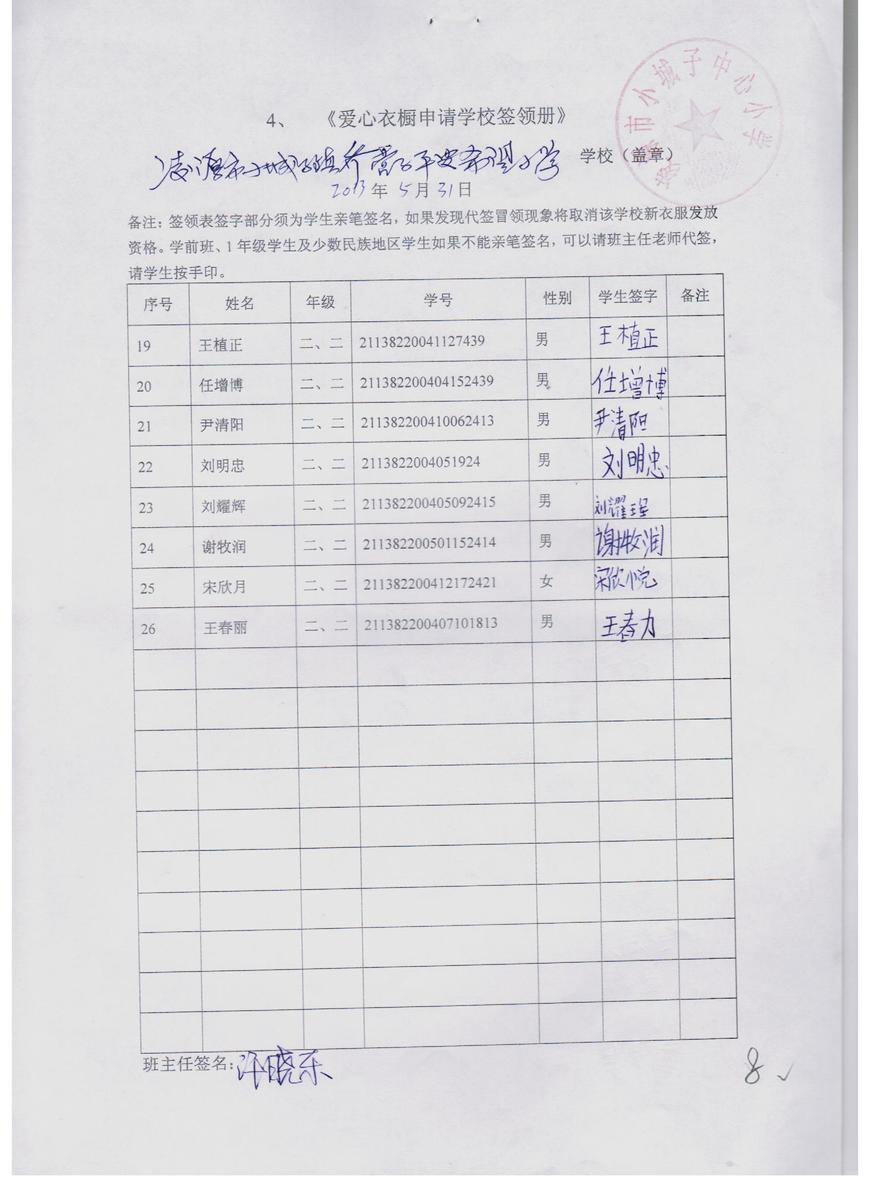 市小城子中心小学
4、 《爱心衣橱申请学校签领册》
凌源市小城子镇乔营子平安希望小学 学校（盖章）
2013年5月31日
备注：签领表签字部分须为学生亲笔签名，如果发现代签冒领现象将取消该学校新衣服发放
资格。学前班、1年级学生及少数民族地区学生如果不能亲笔签名，可以请班主任老师代签，
请学生按手印。
序号 姓名 年级 学号 性别 学生签字 备注
19 王植正 二、二 21138220041127439 男 王植正
20 任增博 二、二 211382200404152439 男 任增博
21 尹清阳 二、二 211382200410062413 男 尹清阳
22 刘明忠 二、二 2113822004051924 男 刘明忠
23 刘耀辉 二、二 211382200405092415 男 刘耀
24 谢牧润 二、二 211382200501152414 男 谢牧润
25 宋欣月 二、二 211382200412172421 女 宋欣悦
26 王春丽 二、二 211382200407101813 男 王春力
班主任签名：许晓东
8 ✓